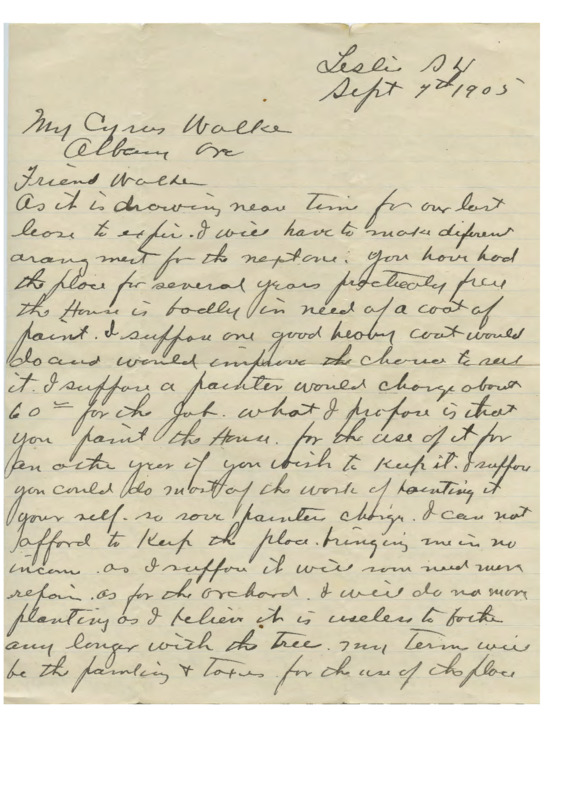 Leslie S D
Sept 7th 1905
Mr Cyrus Walker
Albany Ore
Friend Walker
As it is drawing near time for our last
lease to expire. I will have to make diferent
arangment for the next one. you have had
the place for several years practicaly free
the House is badly in need of a coat of
paint. I suppose one good heavy coat would
do and would improve the chance to sell
it. I suppose a painter would charge about
60 for the Job. what I propose is that
you paint the House. for the use of it for
an other year if you wish to keep it. I suppose
you could do most of the work of painting it
your self. so save painters charge. I can not
afford to Keep the place. bringing me in no
income. as I suppose it will soon need more
repair. as for the orchard. I will do no more
planting as I believe it is useless to bother
any longer with the tree. my Terms will
be the painting & taxes for the use of the place